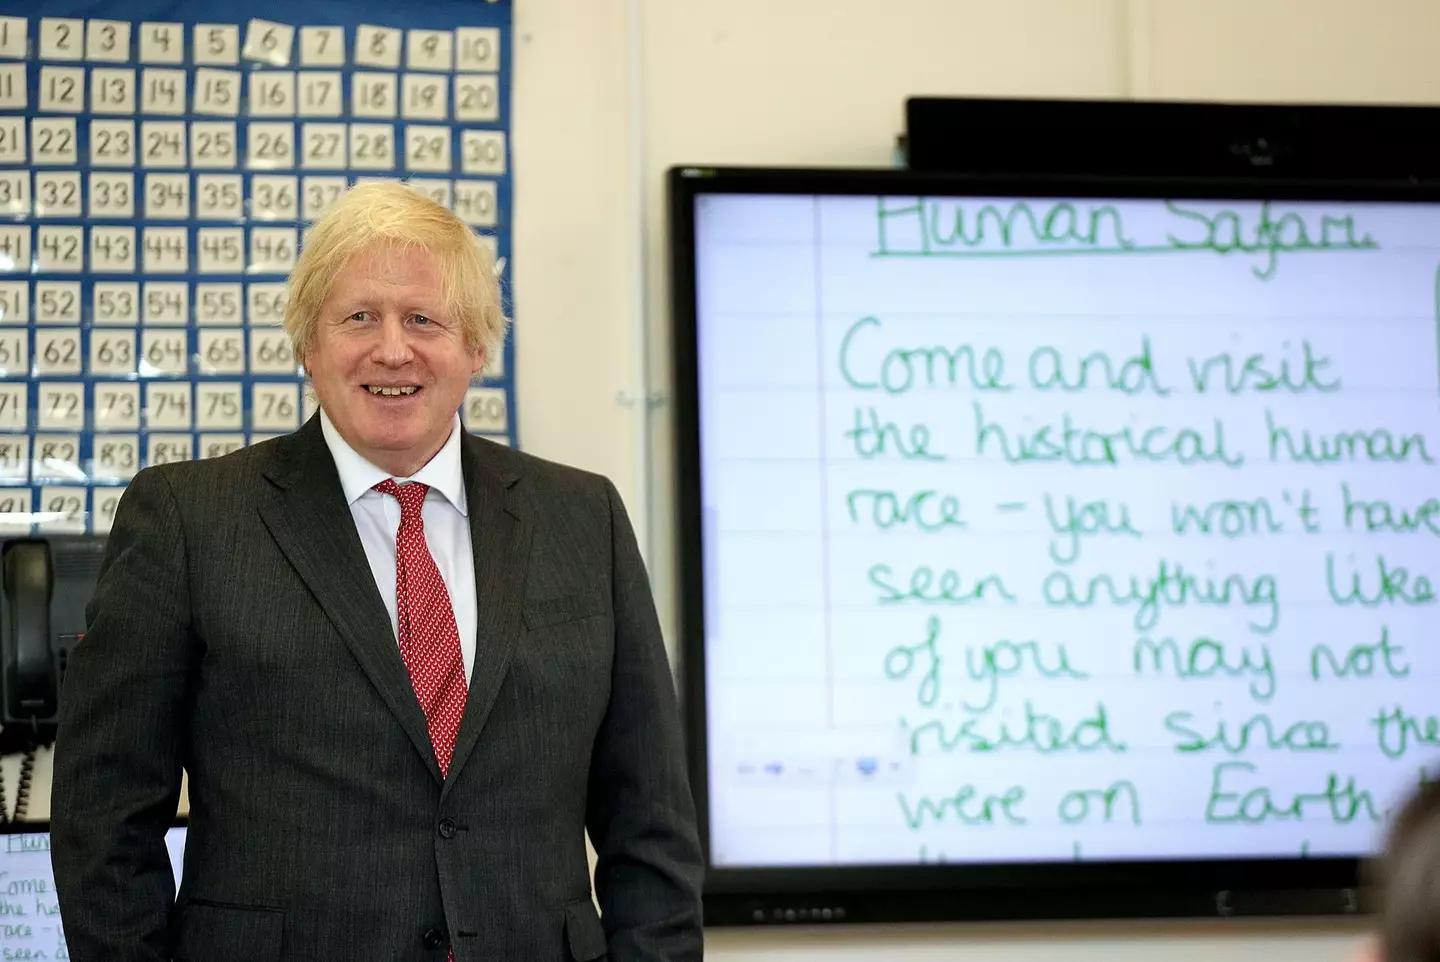 1 2 3 4 5 6 7 8 9 10
11 12 13 14 15 16 17 18 19 20
21 22 23 24 25 26 27 28 29 30
31 32 33 34 35 36 37 40
41 42 43 44 45 46
51 52 53 54 55 56
61 62 63 64 65 66
71 72 73 74 75 76 80
81 82 83 84 85
91 92 9
Human Safari
Come and visit
the historical human
race - you won't have
seen anything like
of you may not
visited since the
were on Earth,
Come
the his
race - y
seen a